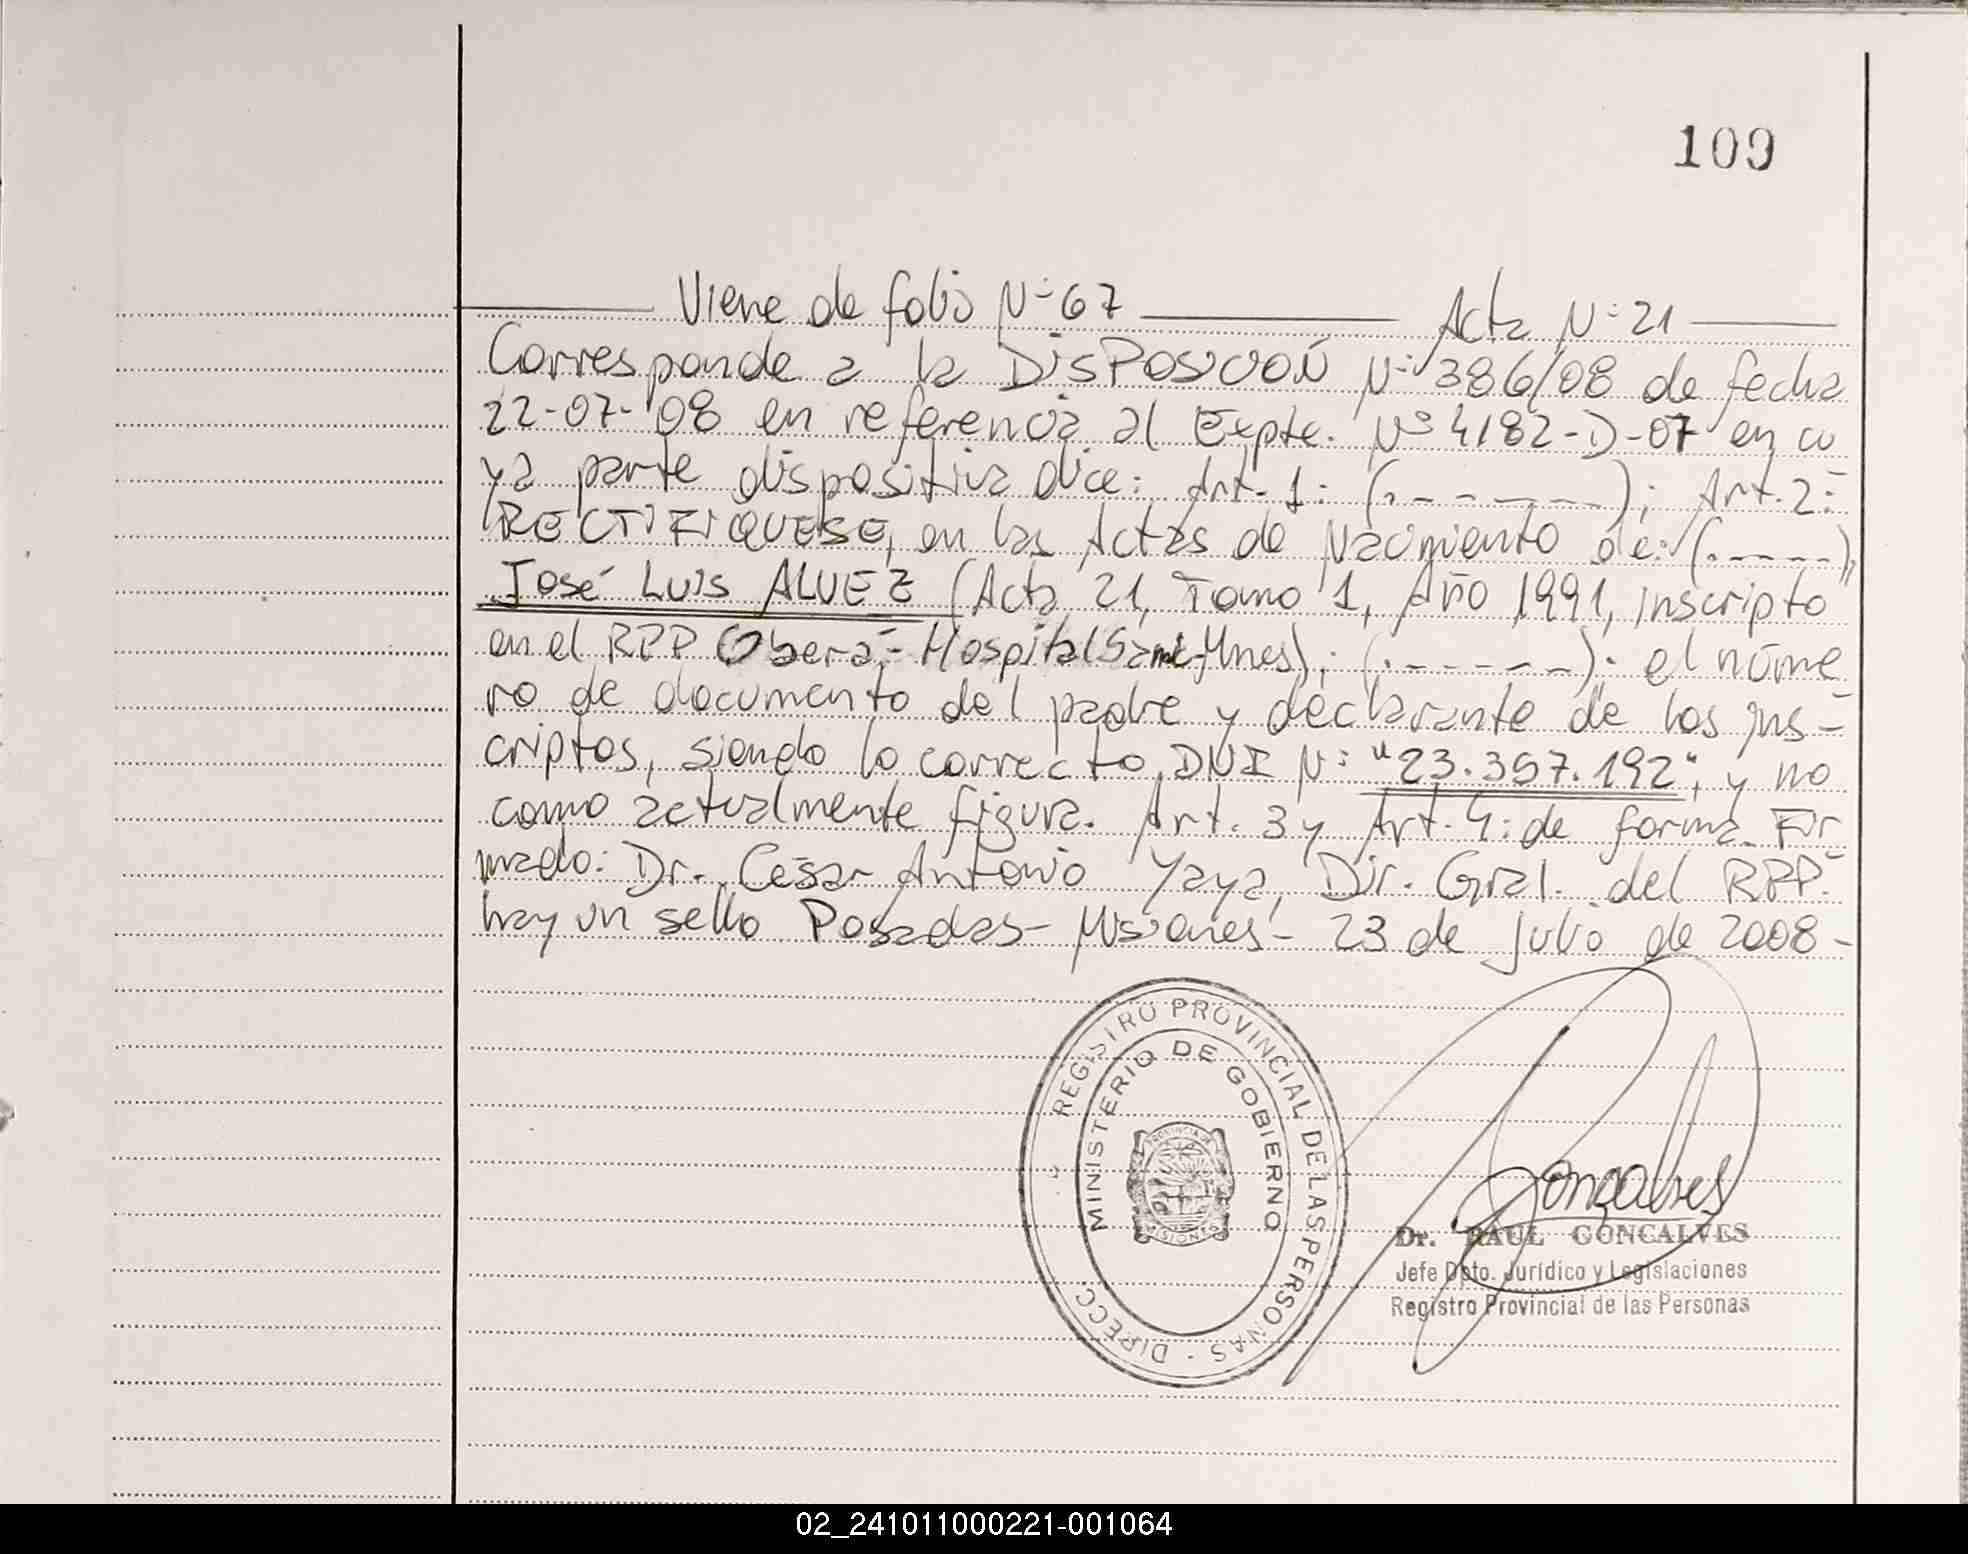 109
Viene de folio Nº 67 Acta Nº 21
Corresponde a la DISPOSICION Nº 386/08 de fecha
22-07-08 en referencia al Expte. Nº 4182-D-07 en cu
ya parte dispositiva dice: Art. 1: (.------); Art. 2:
RECTIFIQUESE, en las Actas de Nacimiento de: (.-----),
José LUIS ALVEZ (Acta 21, Tomo 1, Año 1991, inscripto
en el RPP Oberá - Hospital Samic-Ymes); (.------): el núme
ro de documento del padre y declarante de los ins-
criptos, siendo lo correcto DNI Nº: "23.357.192", y no
como actualmente figura. Art. 3 y Art. 4: de forma. Fir
mado: Dr. César Antonio Yaya, Dir. Gral. del RPP.-
hay un sello Posadas - Misiones - 23 de julio de 2008 -
REGISTRO PROVINCIAL DE LAS PERSONAS - DIRECC.
MINISTERIO DE GOBIERNO
PROVINCIA DE
MISIONES
Gonçalves
Dr. RAUL GONCALVES
Jefe Dpto. Jurídico y Legislaciones
Registro Provincial de las Personas
02_241011000221-001064